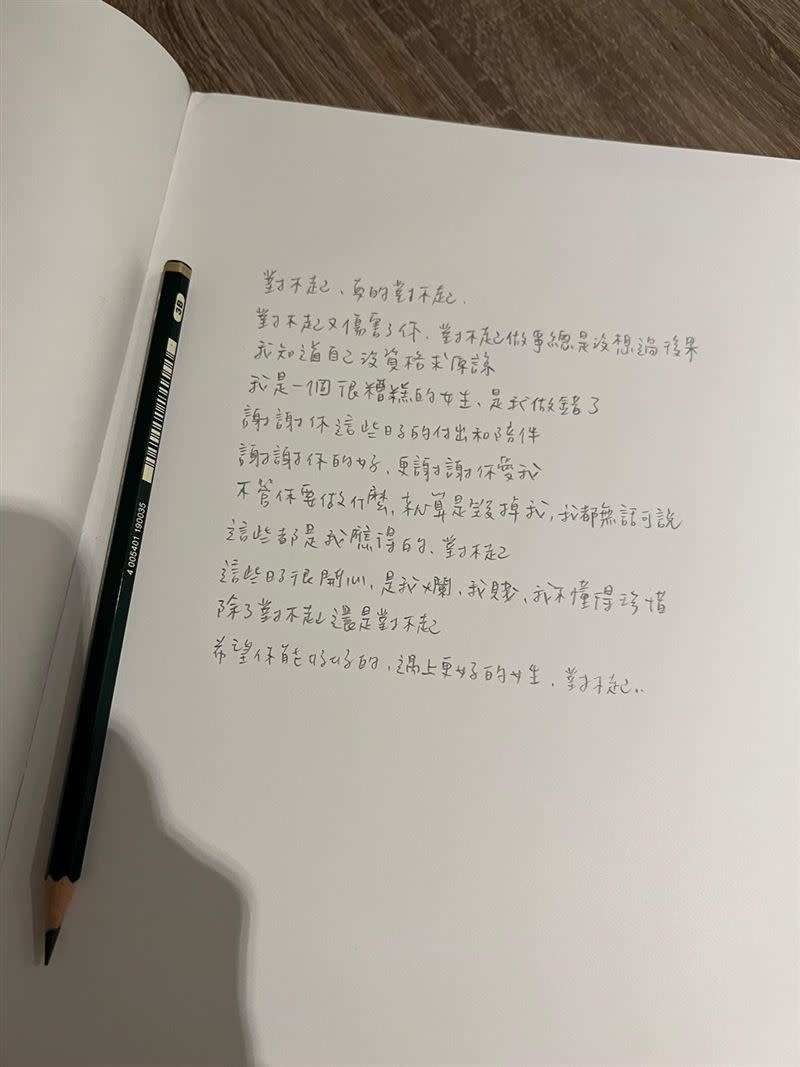 對不起、真的對不起.
對不起又傷害了你.對不起做事總是沒想過後果
我知道自己沒資格求原諒
我是一個很糟糕的女生、是我做錯了
謝謝你這些日子的付出和陪伴
謝謝你的好、更謝謝你愛我
不管你要做什麼,就算是毀掉我,我都無話可說
這些都是我應得的、對不起
這些日子很開心、是我爛、我賤、我不懂得珍惜
除了對不起還是對不起
希望你能好好的,遇上更好的女生.對不起..
3B
4 005401 190035